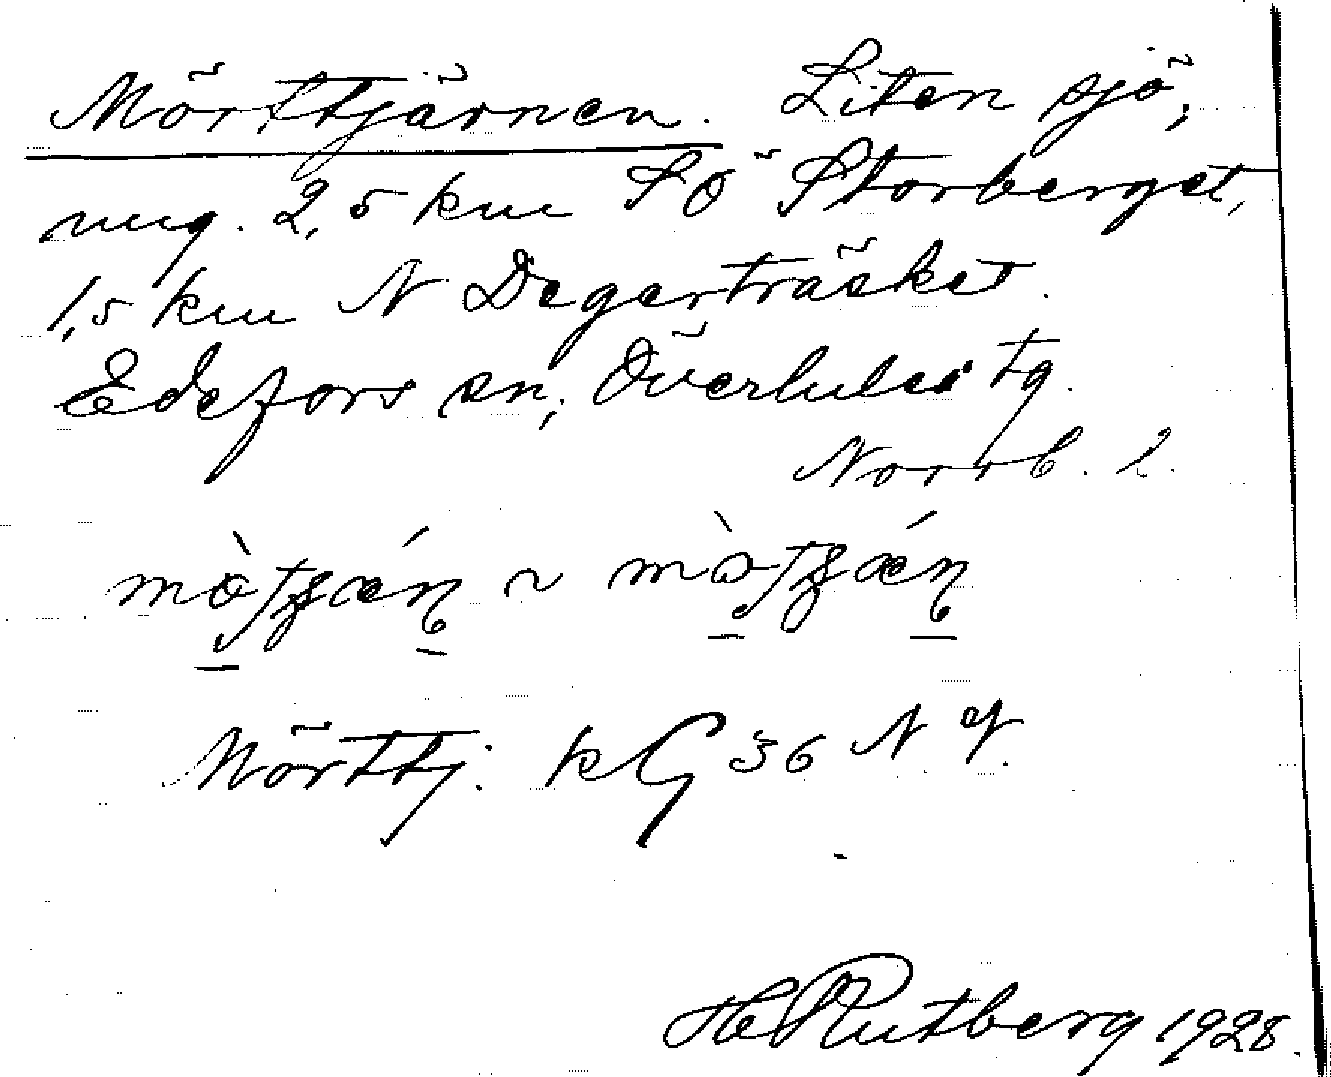 Mörttjärnen. Liten sjö,
ung. 2,5 km SÖ Storberget,
1,5 km N Degerträsket.
Edefors sn, Överluleå tg.
Norrb. l.
Mörttj. kG 36 NV.
H Rutberg 1928.